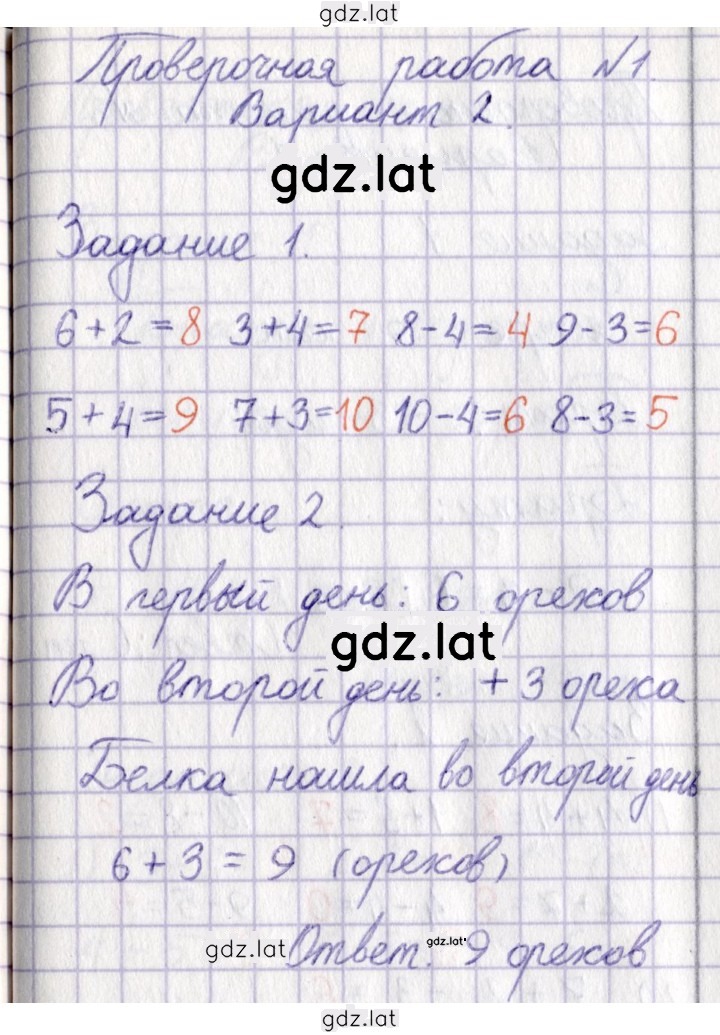 gdz.lat
Проверочная работа №1.
Вариант 2.
gdz.lat
Задание 1.
6+2=8 3+4=7 8-4=4 9-3=6
5+4=9 7+3=10 10-4=6 8-3=5
Задание 2.
В первый день: 6 орехов
gdz.lat
Во второй день: +3 ореха
Белка нашла во второй день
6+3=9 (орехов)
gdz.lat Ответ: gdz.lat 9 орехов
gdz.lat